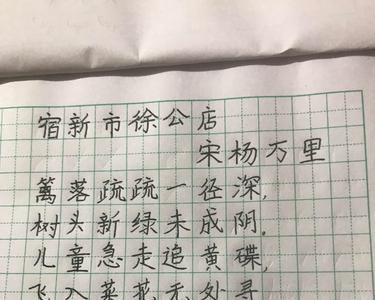 宿新市徐公店
宋杨万里
篱落疏疏一径深,
树头新绿未成阴.
儿童急走追黄碟,
飞入菜花无处寻